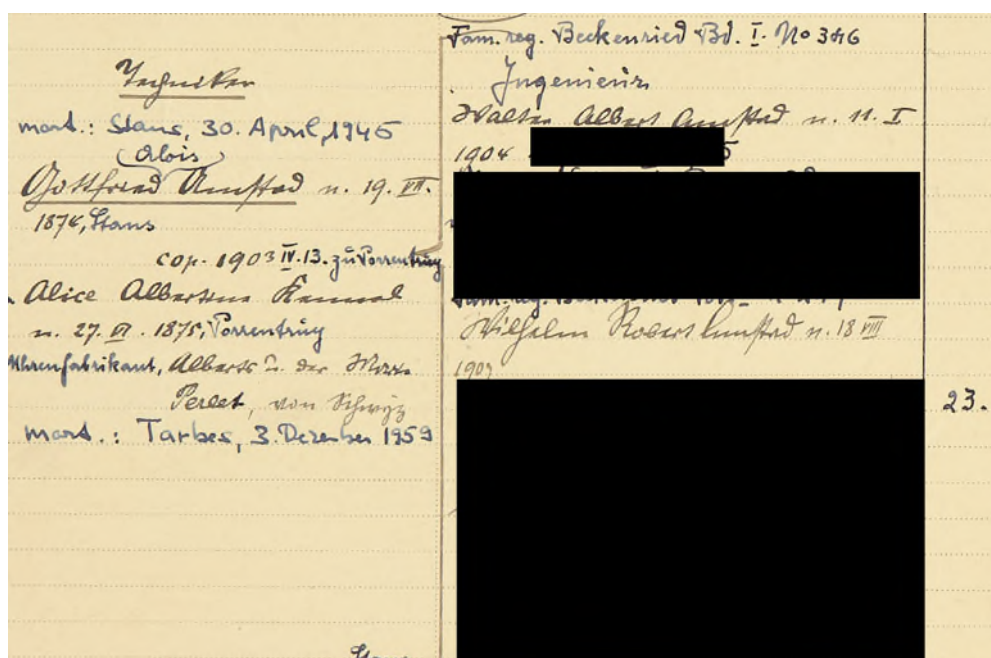 Techniker
mort.: Stans, 30. April, 1945
(Alois)
Gottfried Amstad n. 19. VII.
1874, Stans
cop. 1903 IV. 13. zu Porrentruy
Alice Albertine
n. 27. VI. 1875, Porrentruy
Uhrenfabrikant, Alberts u. der Marie
von Schwyz
mort.: Tarbes, 3. Dezember 1959
Fam. reg. Beckenried Bd. I. No 346
Ingenieur
Walter Albert Amstad n. 11. I
1904
Wilhelm Robert Amstad n. 18 VIII
23.